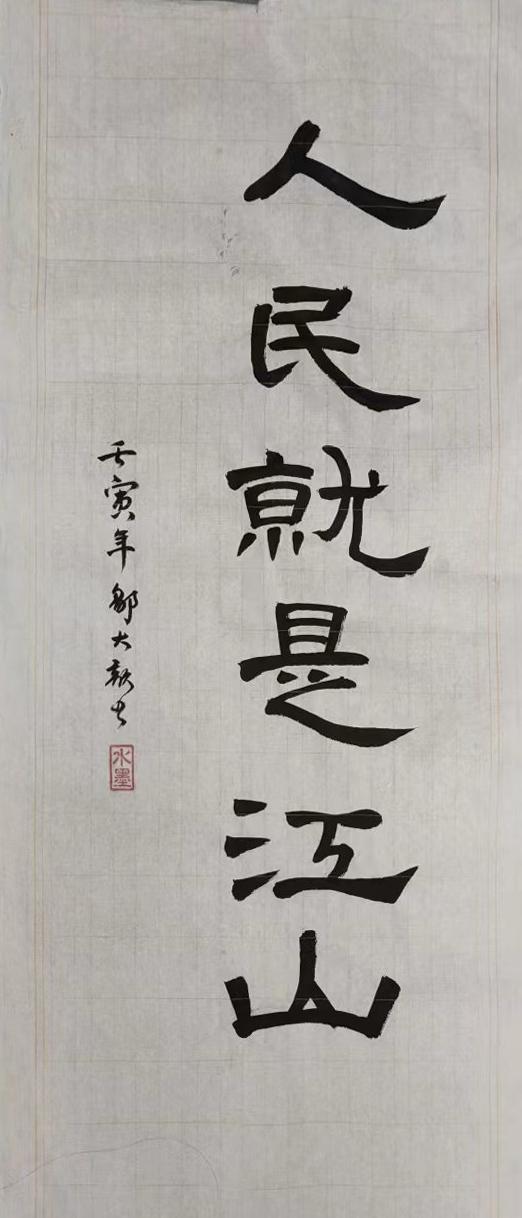 人民就是江山
壬寅年 鄒大新书
水墨